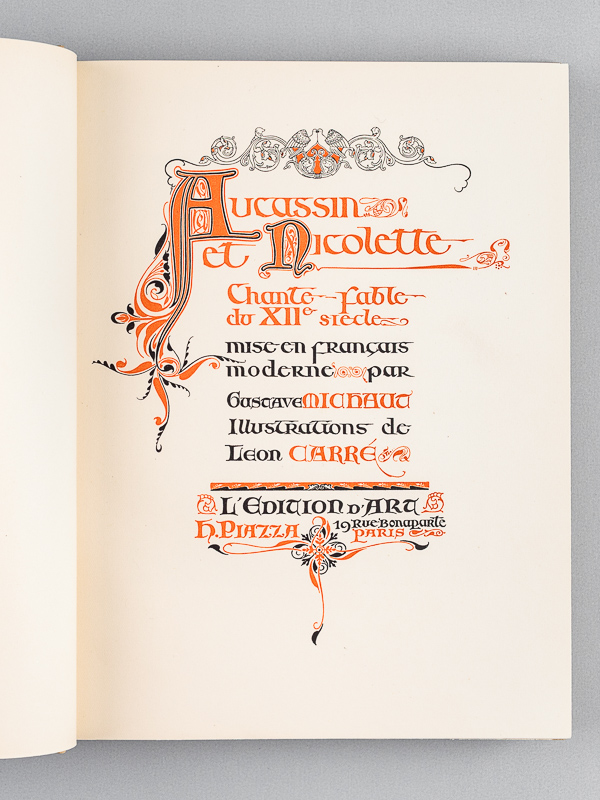 Aucassin
et Nicolette
Chante-fable
du XIIe siècle
mise en français
moderne par
Gustave MICHAUT
Illustrations de
Léon CARRÉ
L'Edition d'Art
H. Piazza 19 Rue Bonaparte
PARIS